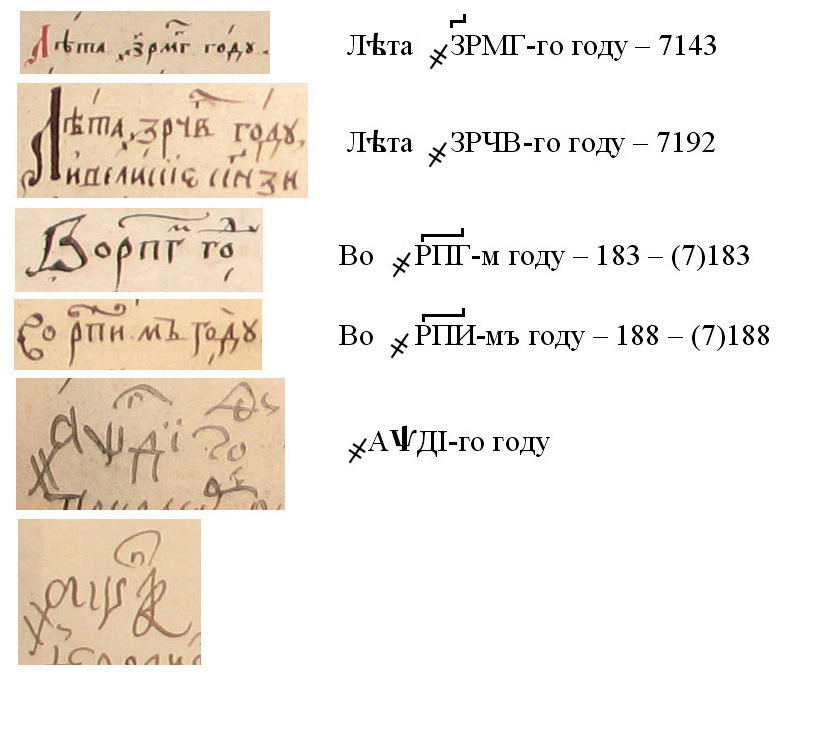 Лѣта ҂зрмг году.
Лѣта ҂ЗРМГ-го году – 7143
Лѣта ҂зрчв году,
Лѣта ҂ЗРЧВ-го году – 7192
Во рпг го
Во ҂РПГ-м году – 183 – (7)183
Во рпи мъ году
Во ҂РПИ-мъ году – 188 – (7)188
҂аѱдї го
҂АѰДІ-го году
҂аѱ